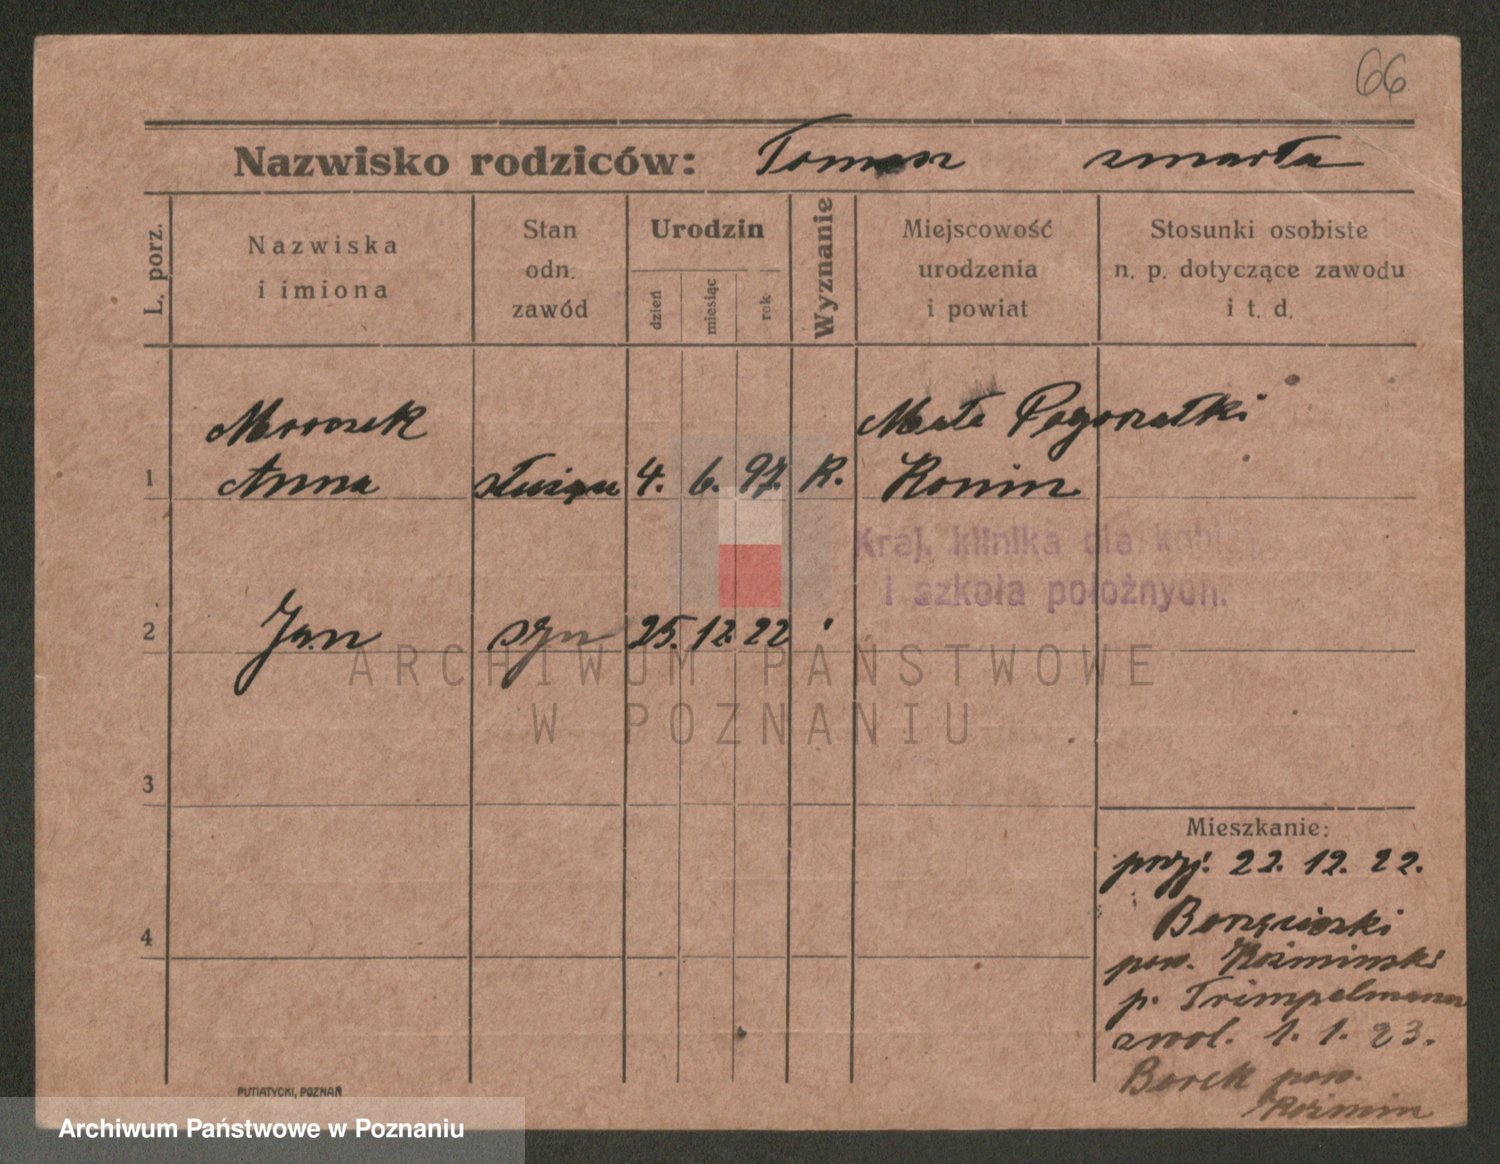 66
Nazwisko rodziców: Tomasz zmarła
L. porz.
Nazwiska
i imiona
Stan
odn.
zawód
Urodzin
dzień
miesiąc
rok
Wyznanie
Miejscowość
urodzenia
i powiat
Stosunki osobiste
n. p. dotyczące zawodu
i t. d.
Mroczek Małe Pogorzałki
1 Anna służąca 4. 6. 97. R. Konin
Kraj. klinika dla kobi
i szkoła położnych.
2 Jan syn 25. 12. 22
ARCHIWUM PAŃSTWOWE
W POZNANIU
3
4
Mieszkanie:
przyj. 22. 12. 22.
Borzęciczki
pow. Koźminski
p. Trimpelmann
zwol. 1. 1. 23.
Borek pow.
Koźmin
PUTIATYCKI, POZNAŃ
Archiwum Państwowe w Poznaniu